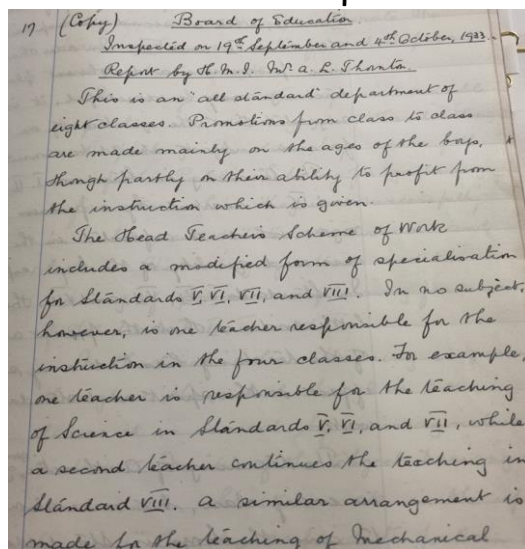 17 (Copy) Board of Education.
Inspected on 19th September and 4th October, 1933.
Report by H.M.I. Mr. A. L. Thornton.
This is an "all standard" department of
eight classes. Promotions from class to class
are made mainly on the ages of the boys,
though partly on their ability to profit from
the instruction which is given.
The Head Teacher's Scheme of Work
includes a modified form of specialisation
for Standards V, VI, VII, and VIII. In no subject,
however, is one teacher responsible for the
instruction in the four classes. For example,
one teacher is responsible for the teaching
of Science in Standards V, VI, and VII, while
a second teacher continues the teaching in
Standard VIII. A similar arrangement is
made for the teaching of Mechanical